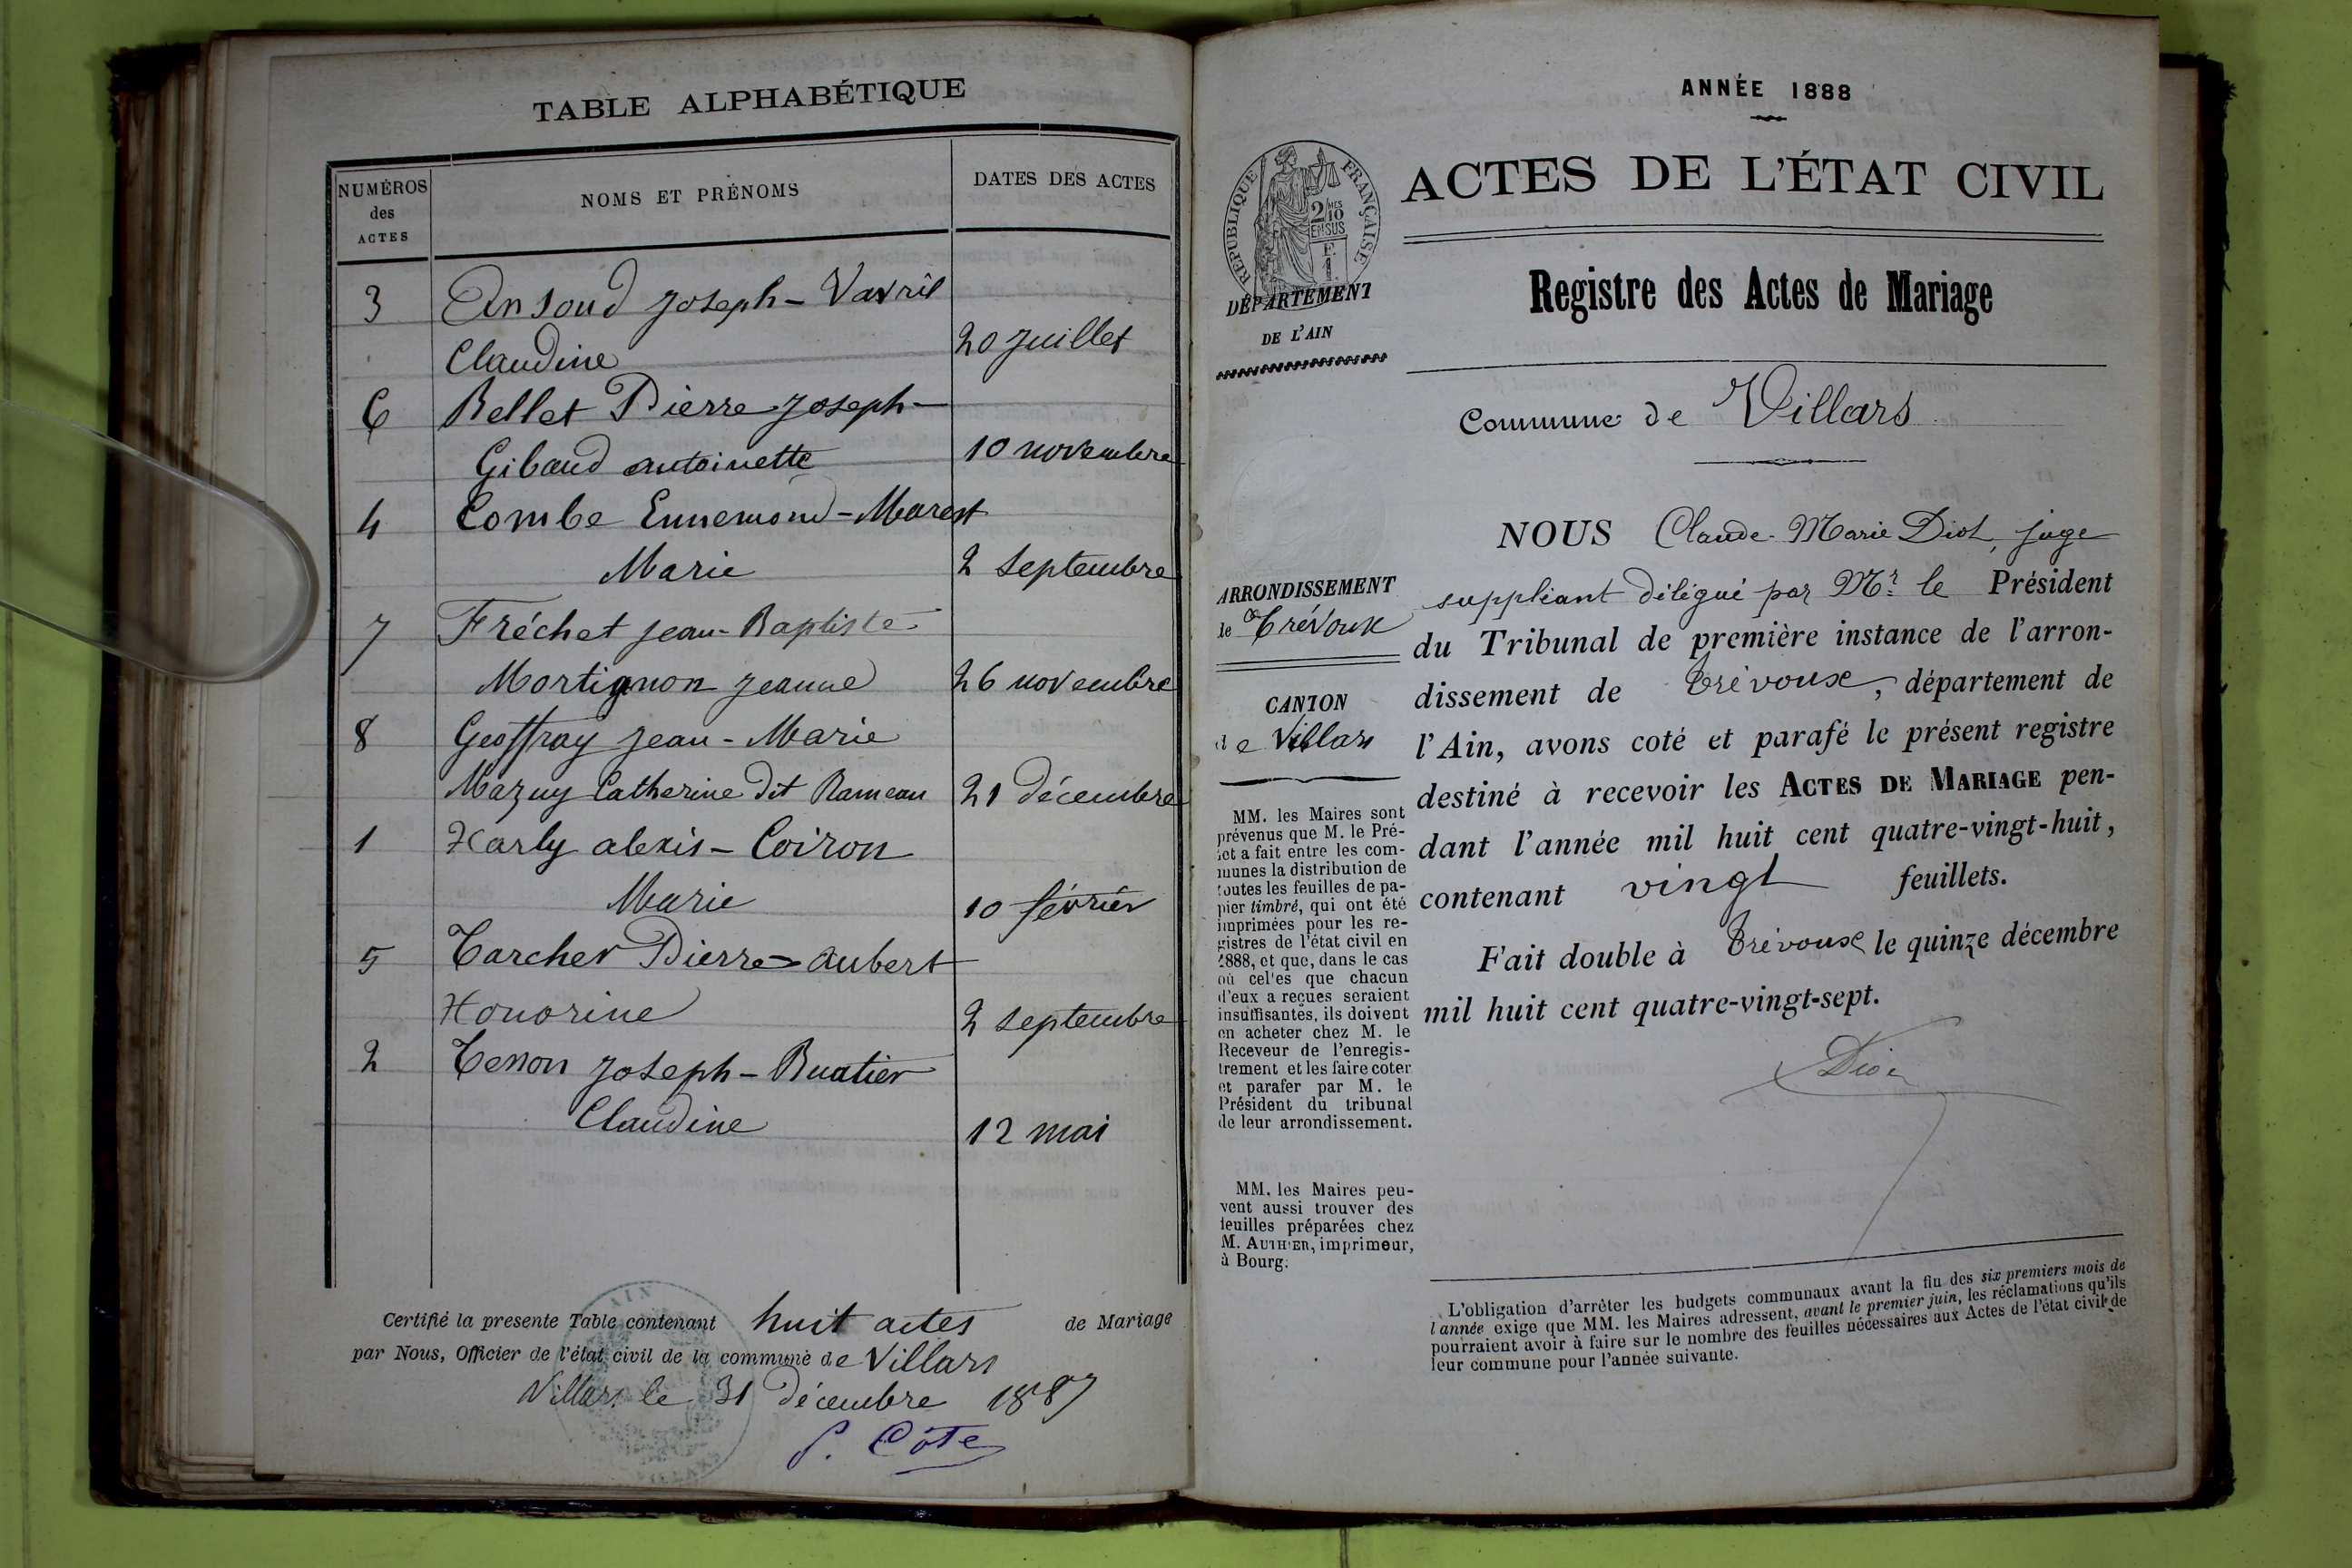 TABLE ALPHABÉTIQUE
NUMÉROS des ACTES
NOMS ET PRÉNOMS
DATES DES ACTES
3 Ansoud Joseph - Vavril
Claudine 20 Juillet
6 Bellet Pierre Joseph -
Gibaud antoinette 10 novembre
4 Combe Ennemond - Marest
Marie 2 septembre
7 Fréchet jean-Baptiste -
Mortignon jeanne 26 novembre
8 Geoffray jean-Marie
Mazuy Catherine dit Rameau 21 décembre
1 Harly alexis - Coiron
Marie 10 février
5 Tarcher Pierre - Aubert
Honorine 2 septembre
2 Tenon Joseph - Buatier
Claudine 12 mai
Certifié la presente Table contenant huit actes de Mariage
par Nous, Officier de l'état civil de la commune de Villars
Villars le 31 décembre 1887
P. Côte
ANNÉE 1888
RÉPUBLIQUE FRANÇAISE
2/10 MES
EN SUS
F.
1.
DÉPARTEMENT
DE L'AIN
ACTES DE L'ÉTAT CIVIL
Registre des Actes de Mariage
Commune de Villars
ARRONDISSEMENT
de Trévoux
CANTON
de Villars
MM. les Maires sont
prévenus que M. le Pré-
fet a fait entre les com-
munes la distribution de
toutes les feuilles de pa-
pier timbré, qui ont été
imprimées pour les re-
gistres de l'état civil en
1888, et que, dans le cas
où cel'es que chacun
d'eux a reçues seraient
insuffisantes, ils doivent
en acheter chez M. le
Receveur de l'enregis-
trement et les faire coter
et parafer par M. le
Président du tribunal
de leur arrondissement.
MM. les Maires peu-
vent aussi trouver des
feuilles préparées chez
M. AUTHIER, imprimeur,
à Bourg.
NOUS Claude-Marie Diot, juge
suppléant délégué par Mr. le Président
du Tribunal de première instance de l'arron-
dissement de Trévoux, département de
l'Ain, avons coté et parafé le présent registre
destiné à recevoir les ACTES DE MARIAGE pen-
dant l'année mil huit cent quatre-vingt-huit,
contenant vingt feuillets.
Fait double à Trévoux le quinze décembre
mil huit cent quatre-vingt-sept.
Diot
L'obligation d'arrêter les budgets communaux avant la fin des six premiers mois de
l'année exige que MM. les Maires adressent, avant le premier juin, les réclamations qu'ils
pourraient avoir à faire sur le nombre des feuilles nécessaires aux Actes de l'état civil de
leur commune pour l'année suivante.